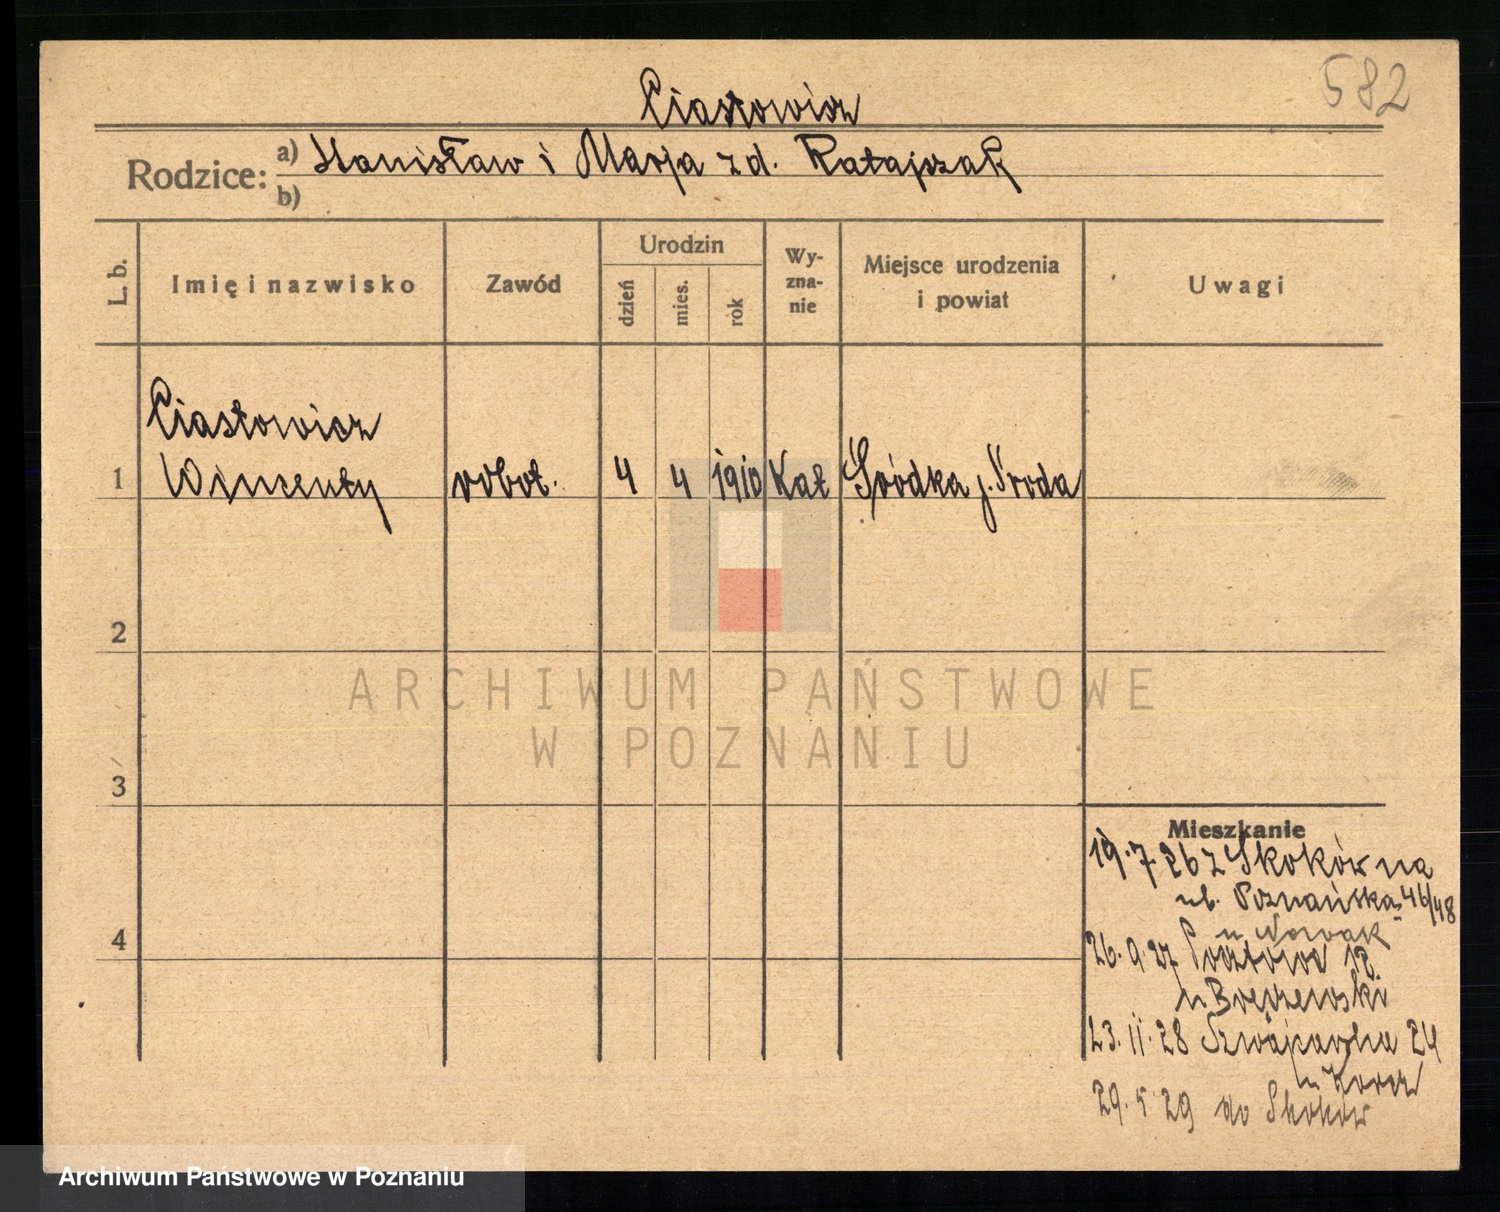 582
Ciastowicz
Rodzice: a) Stanisław i Marja z d. Ratajszak
b)
L. b. Imię i nazwisko Zawód Urodzin dzień mies. rok Wyznanie Miejsce urodzenia i powiat Uwagi
Ciastowicz
1 Wincenty robot. 4 4 1910 Kat Śródka p. Środa
2
ARCHIWUM PAŃSTWOWE
W POZNANIU
3
Mieszkanie
19.7.26 z Skoków na
ul. Poznańska 46/48
u Nowak
4
26.9.27 12
u
23.11.28 Szwajcarska 24
u
29.5.29 do Skoków
Archiwum Państwowe w Poznaniu